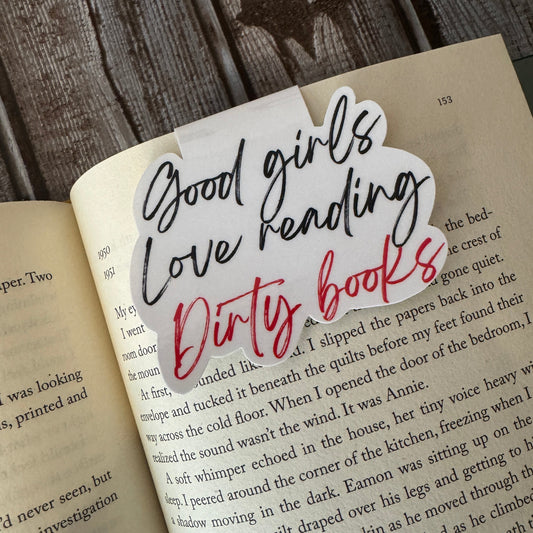 per. Two
was looking
s, printed and
'd never seen, but
investigation
153
Good girls
Love reading
Dirty books
1950
1951
My
I went
room door
the moun
the bed-
crest of
gone quiet.
At first, unded like I slipped the papers back into the
envelope and tucked it beneath the quilts before my feet found their
way across the cold floor. When I opened the door of the bedroom, I
realized the sound wasn't the wind. It was Annie.
A soft whimper echoed in the house, her tiny voice heavy wi
sleep. I peered around the corner of the kitchen, freezing when I
a shadow moving in the dark. Eamon was sitting up on the
quilt draped over his legs and getting to hi
kin as he moved through the
ed as he climbed